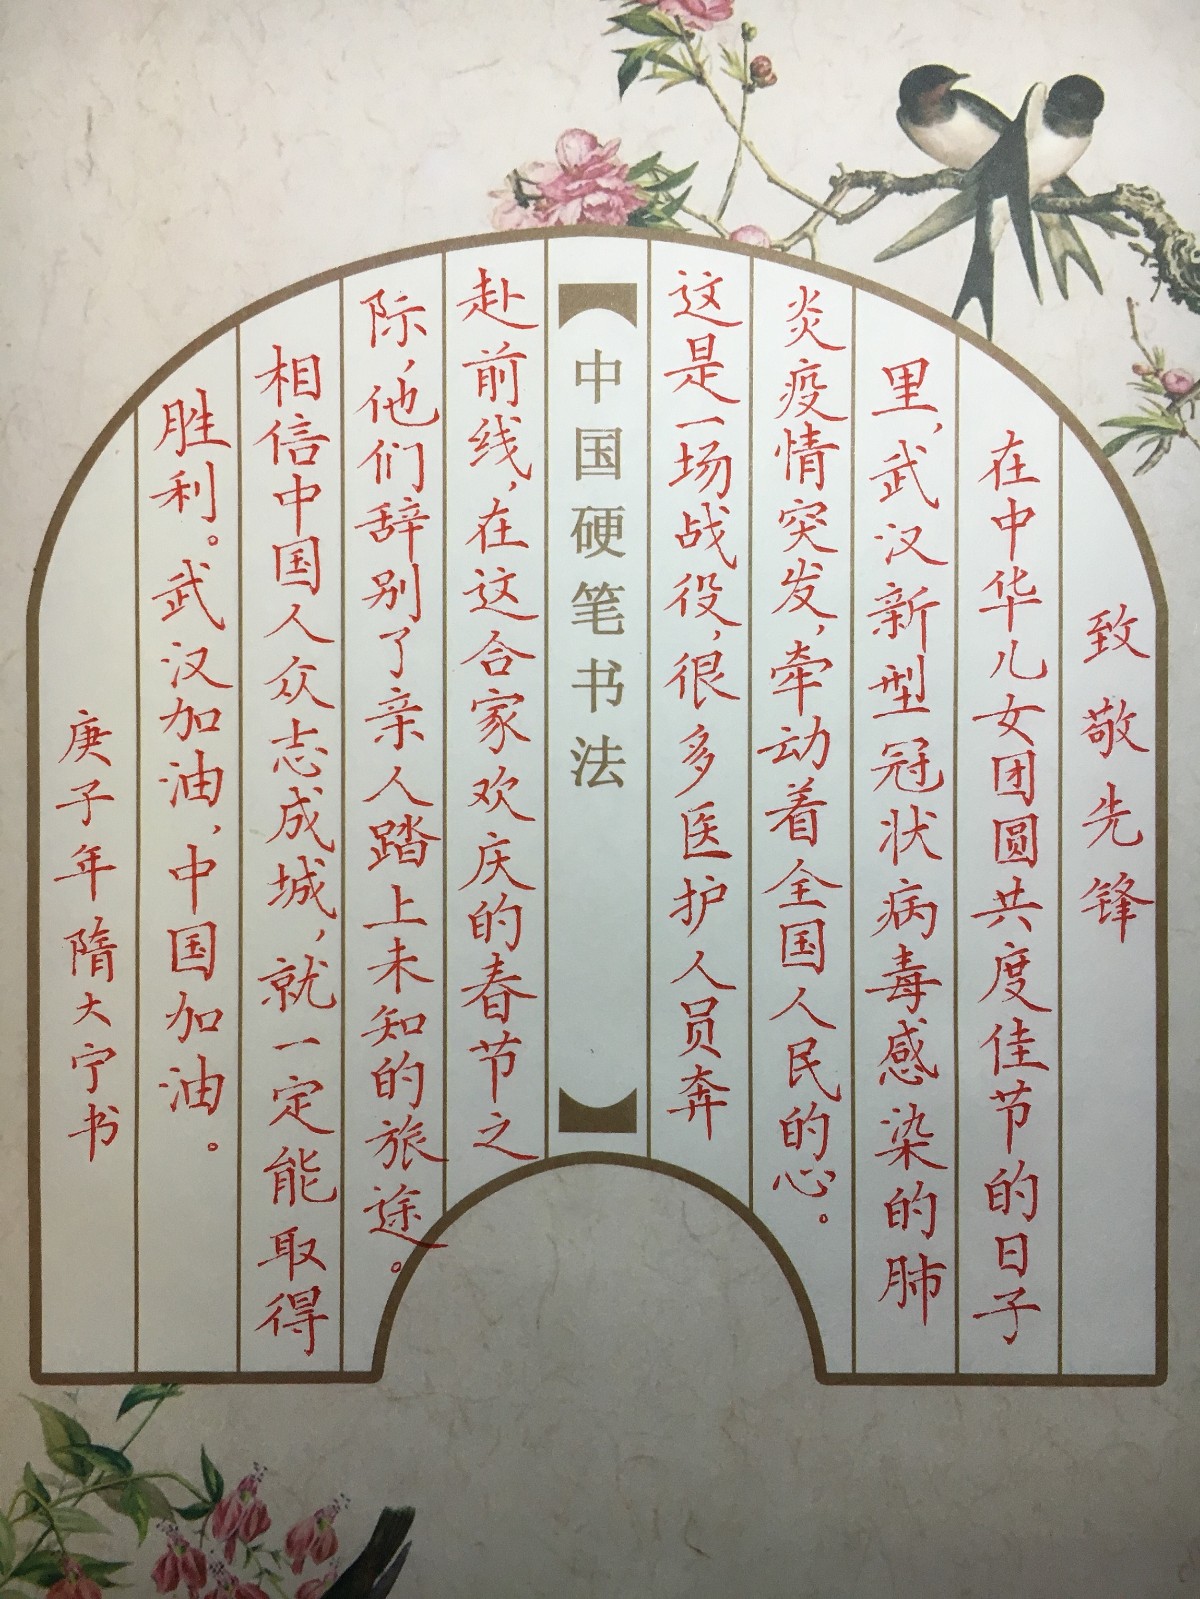 致敬先锋
在中华儿女团圆共度佳节的日子
里,武汉新型冠状病毒感染的肺
炎疫情突发,牵动着全国人民的心。
这是一场战役,很多医护人员奔
中国硬笔书法
赴前线,在这合家欢庆的春节之
际,他们辞别了亲人踏上未知的旅途。
相信中国人众志成城,就一定能取得
胜利。武汉加油,中国加油。
庚子年隋大宁书